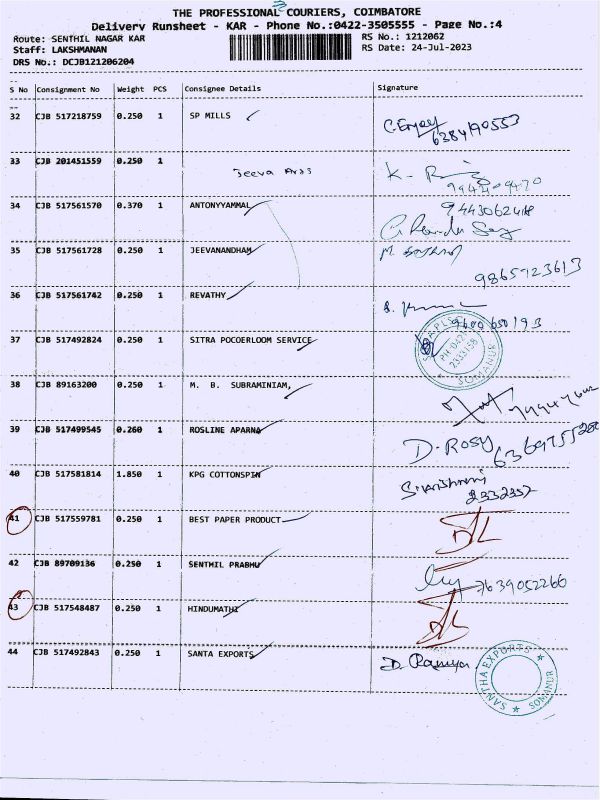 THE PROFESSIONAL COURIERS, COIMBATORE
3
Delivery Runsheet - KAR - Phone No.:0422-3505555 - Page No.:4
Route: SENTHIL NAGAR KAR
RS No.: 1212062
Staff: LAKSHMANAN
RS Date: 24-Jul-2023
DRS No.: DCJB121206204
S No Consignment No Weight PCS Consignee Details Signature
32 CJB 517218759 0.250 1 SP MILLS
33 CJB 201451559 0.250 1 Jeeva Aras
34 CJB 517561570 0.370 1 ANTONYYAMMAL
35 CJB 517561728 0.250 1 JEEVANANDHAM
9865723613
36 CJB 517561742 0.250 1 REVATHY
9600650193
37 CJB 517492824 0.250 1 SITRA POCOERLOOM SERVICE
PH:0421
2333158
SOMANUR
38 CJB 89163200 0.250 1 M. B. SUBRAMINIAM,
39 CJB 517499545 0.260 1 ROSLINE APARNA D. Rosy
40 CJB 517581814 1.850 1 KPG COTTONSPIN
2332352
41 CJB 517559781 0.250 1 BEST PAPER PRODUCT
42 CJB 89709136 0.250 1 SENTHIL PRABHU 7639052266
43 CJB 517548487 0.250 1 HINDUMATHI
44 CJB 517492843 0.250 1 SANTA EXPORTS D. Ramya
SANTHA EXPORTS
SOMANUR